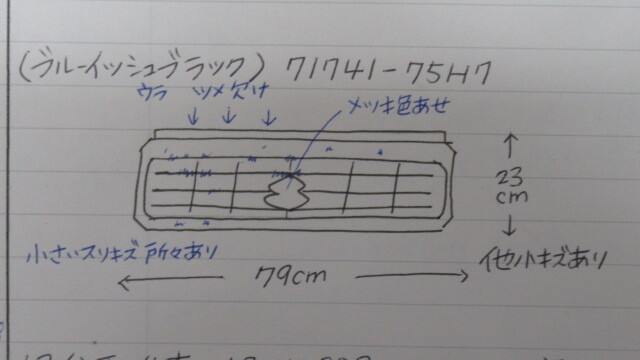 (ブルーイッシュブラック) 71741-75H7
ウラ ツメ欠け
メッキ色あせ
23
cm
小さいスリキズ所々あり
他小キズあり
79cm